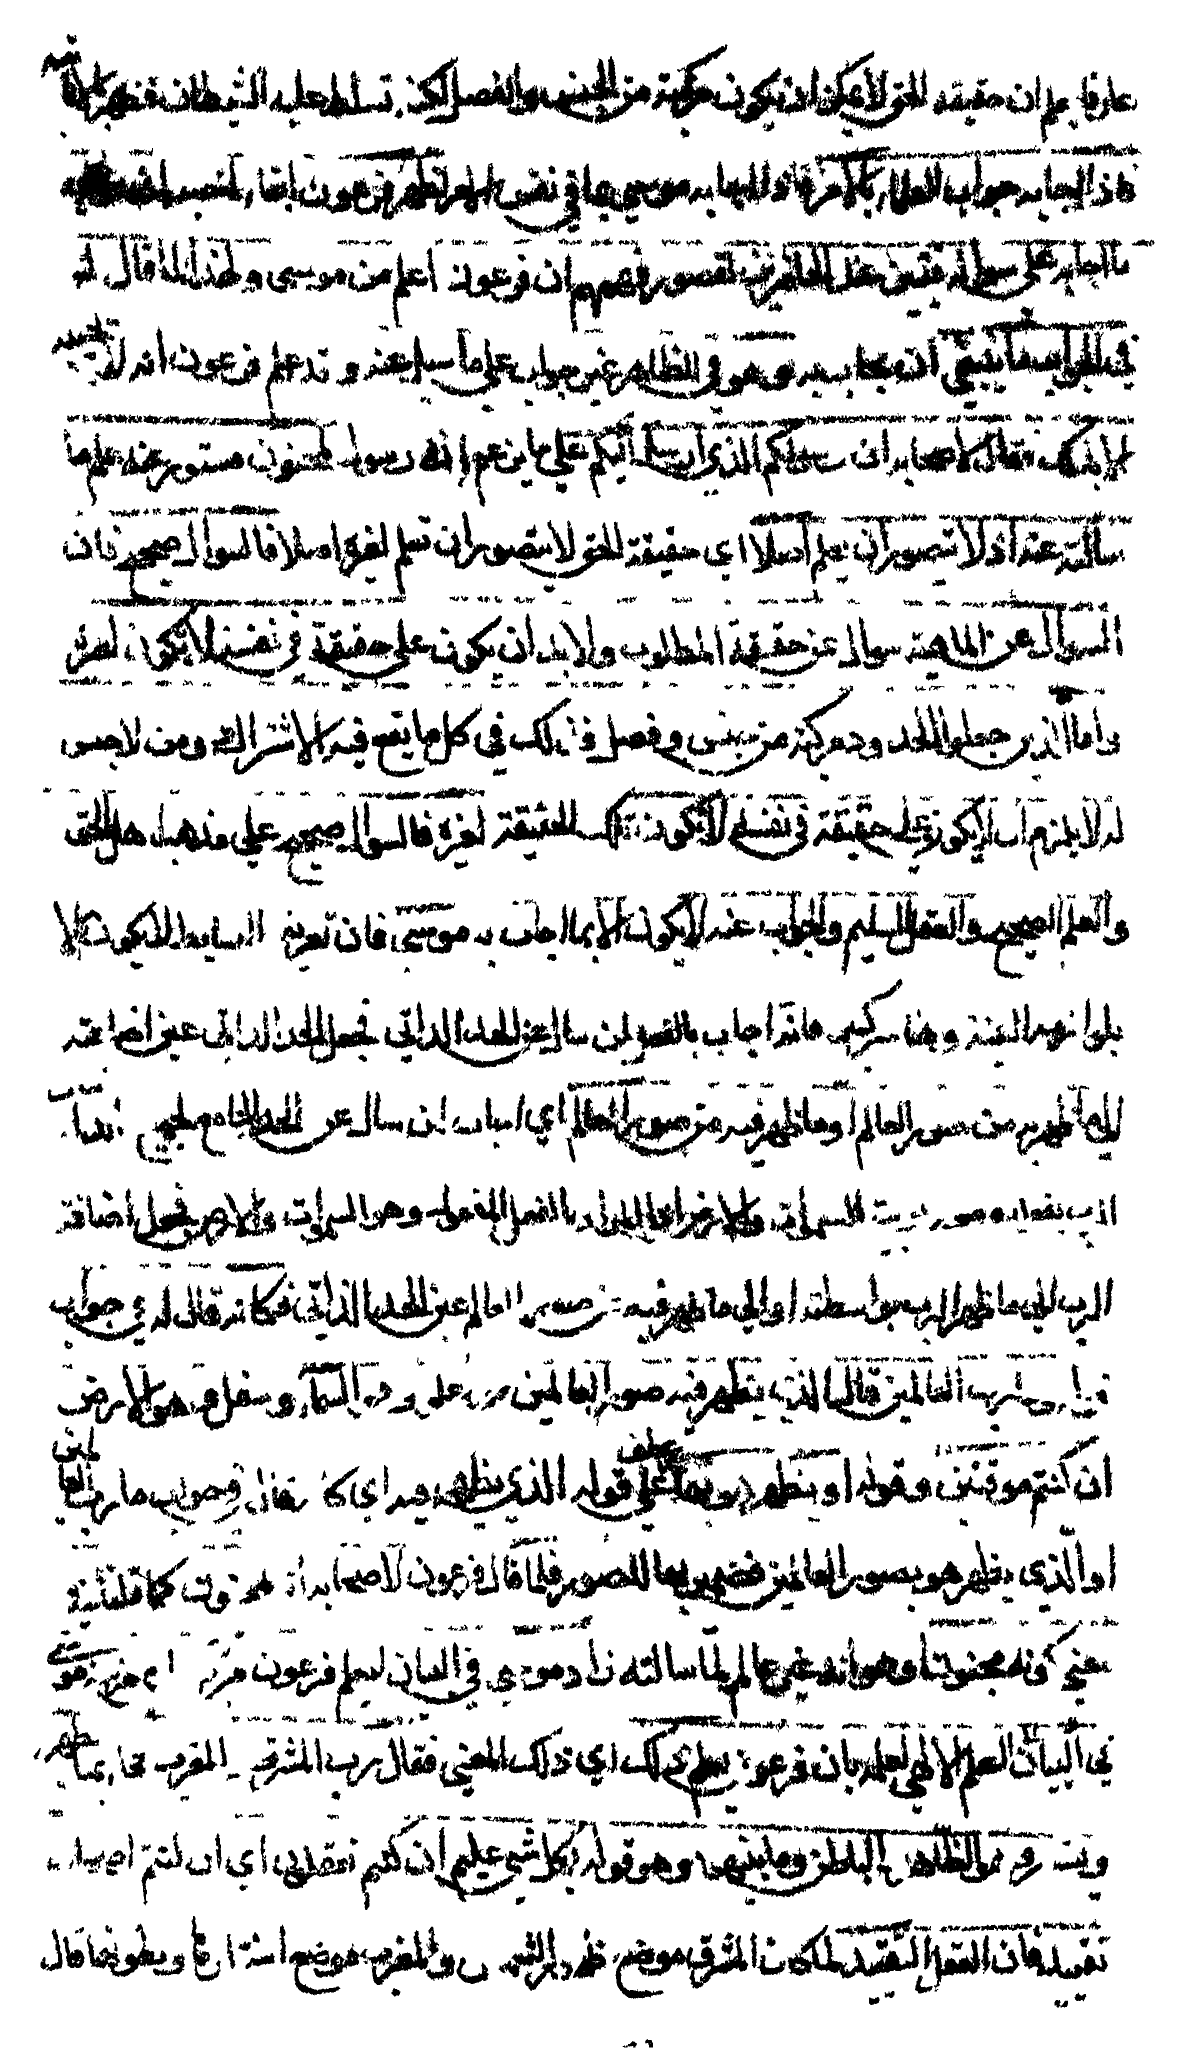 عارفا يعلم ان حقيقة الحق لا يمكن ان يكون مركبة من الجنس والفصل لكن تسلط عليه الشيطان فظهر بالانانية
فاذا اجابه جواب العلماء بالامر فاذا اجابه موسى بما في نفس الامر اظهر فرعون ابقاء لمنصبه ان موسى
ما اجابه على سؤاله فتبين عند الحاضرين لقصور فهمهم ان فرعون اعلم من موسى ولهذا لما قال له
في الجواب ما ينبغي ان يجاب به وهو في الظاهر غير جواب على ما سئل عنه وقد علم فرعون انه لا يجيبه
الا بذلك فقال لاصحابه ان رسولكم الذي ارسل اليكم على ما يزعم انه رسول لمجنون مستور عنه علم ما
سالته عنه اذ لا يتصور ان يعلم اصلا اي حقيقة الحق لا يتصور ان تعلم لغيره اصلا فالسؤال صحيح فان
السؤال عن الماهية سؤال عن حقيقة المطلوب ولا بد ان يكون على حقيقة في نفسه لا يكون لغيره
واما الذين جعلوا الحدود مركبة من جنس وفصل فذلك في كل ما يقع فيه الاشتراك ومن لا جنس
له لا يلزم ان لا يكون على حقيقة في نفسه لا يكون تلك الحقيقة لغيره فالسؤال صحيح على مذهب اهل الحق
والعلم الصحيح والعقل السليم والجواب عنه لا يكون الا بما اجاب به موسى فان تعريف البسايط لا يكون الا
بلوازمها البينة وهنا سر كبير فانه اجاب بالفعل لمن سال عن الحد الذاتي فجعل الحد الذاتي عين اضافته
الى ما ظهر به من صور العالم او ما ظهر فيه من صور العالم اي اجاب لمن سال عن الحد الجامع لجميع
الرب بقوله رب السموات والارض بالفعل وهو السموات والارض فجعل اضافة
الرب الى ما ظهر الرب بواسطته او الى ما ظهر فيه من صور العالم عين الحد الذاتي فكانه قال له في جواب
وما رب العالمين قال الذي يظهر فيه صور العالمين من علو وهو السماء وسفل وهو الارض
ان كنتم موقنين وقوله او يظهر هو بها عطف على قوله الذي يظهر فيه اي كانه قال في جواب ما رب العالمين
او الذي يظهر هو بصور العالمين فضمير بها للصور فلما قال فرعون لاصحابه انه لمجنون كما قلنا في
معنى كونه مجنونا وهو انه غير عالم لما سالته زاد موسى في البيان ليعلم فرعون مرتبته اي مرتبة موسى
في البيان العلم الالهي لعلمه بان فرعون يعلم ذلك اي ذلك المعنى فقال رب المشرق والمغرب فجاء بما يظهر
ويستر وهو الظاهر والباطن وما بينهما وهو قوله بكل شيء عليم ان كنتم تعقلون اي ان كنتم اصحاب
تقييد فان العقل التقييد لما كان المشرق موضع ظهور الشمس والمغرب موضع استتارها وبطونها قال